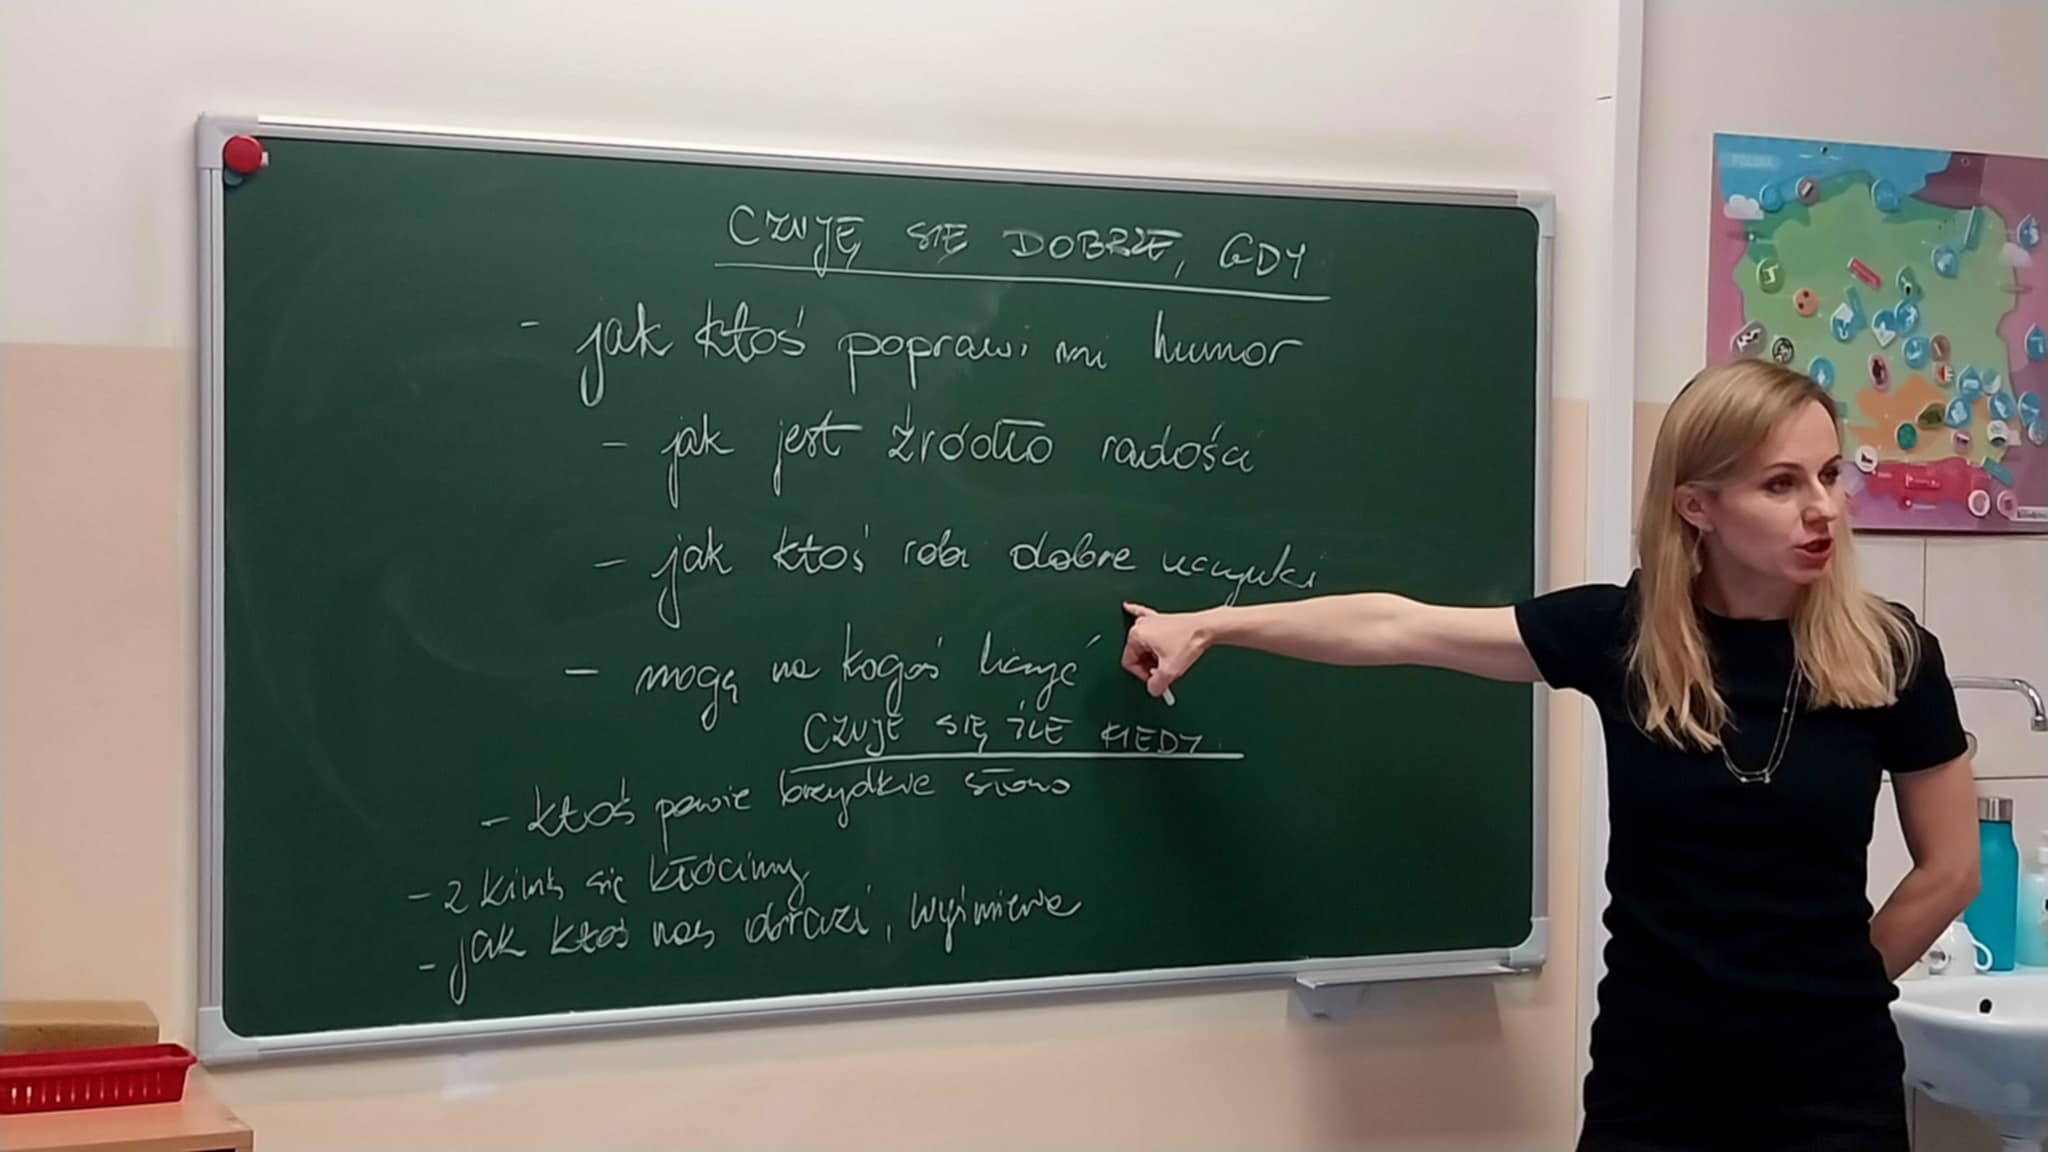 CZUJĘ SIĘ DOBRZE, GDY
- jak ktoś poprawi mi humor
- jak jest źródło radości
- jak ktoś robi dobre uczynki
- mogą na kogoś liczyć
CZUJĘ SIĘ ŹLE KIEDY
- ktoś powie brzydkie słowo
- z kimś się kłócimy
- jak ktoś nas obrazi, wyśmiewa
POLSKA